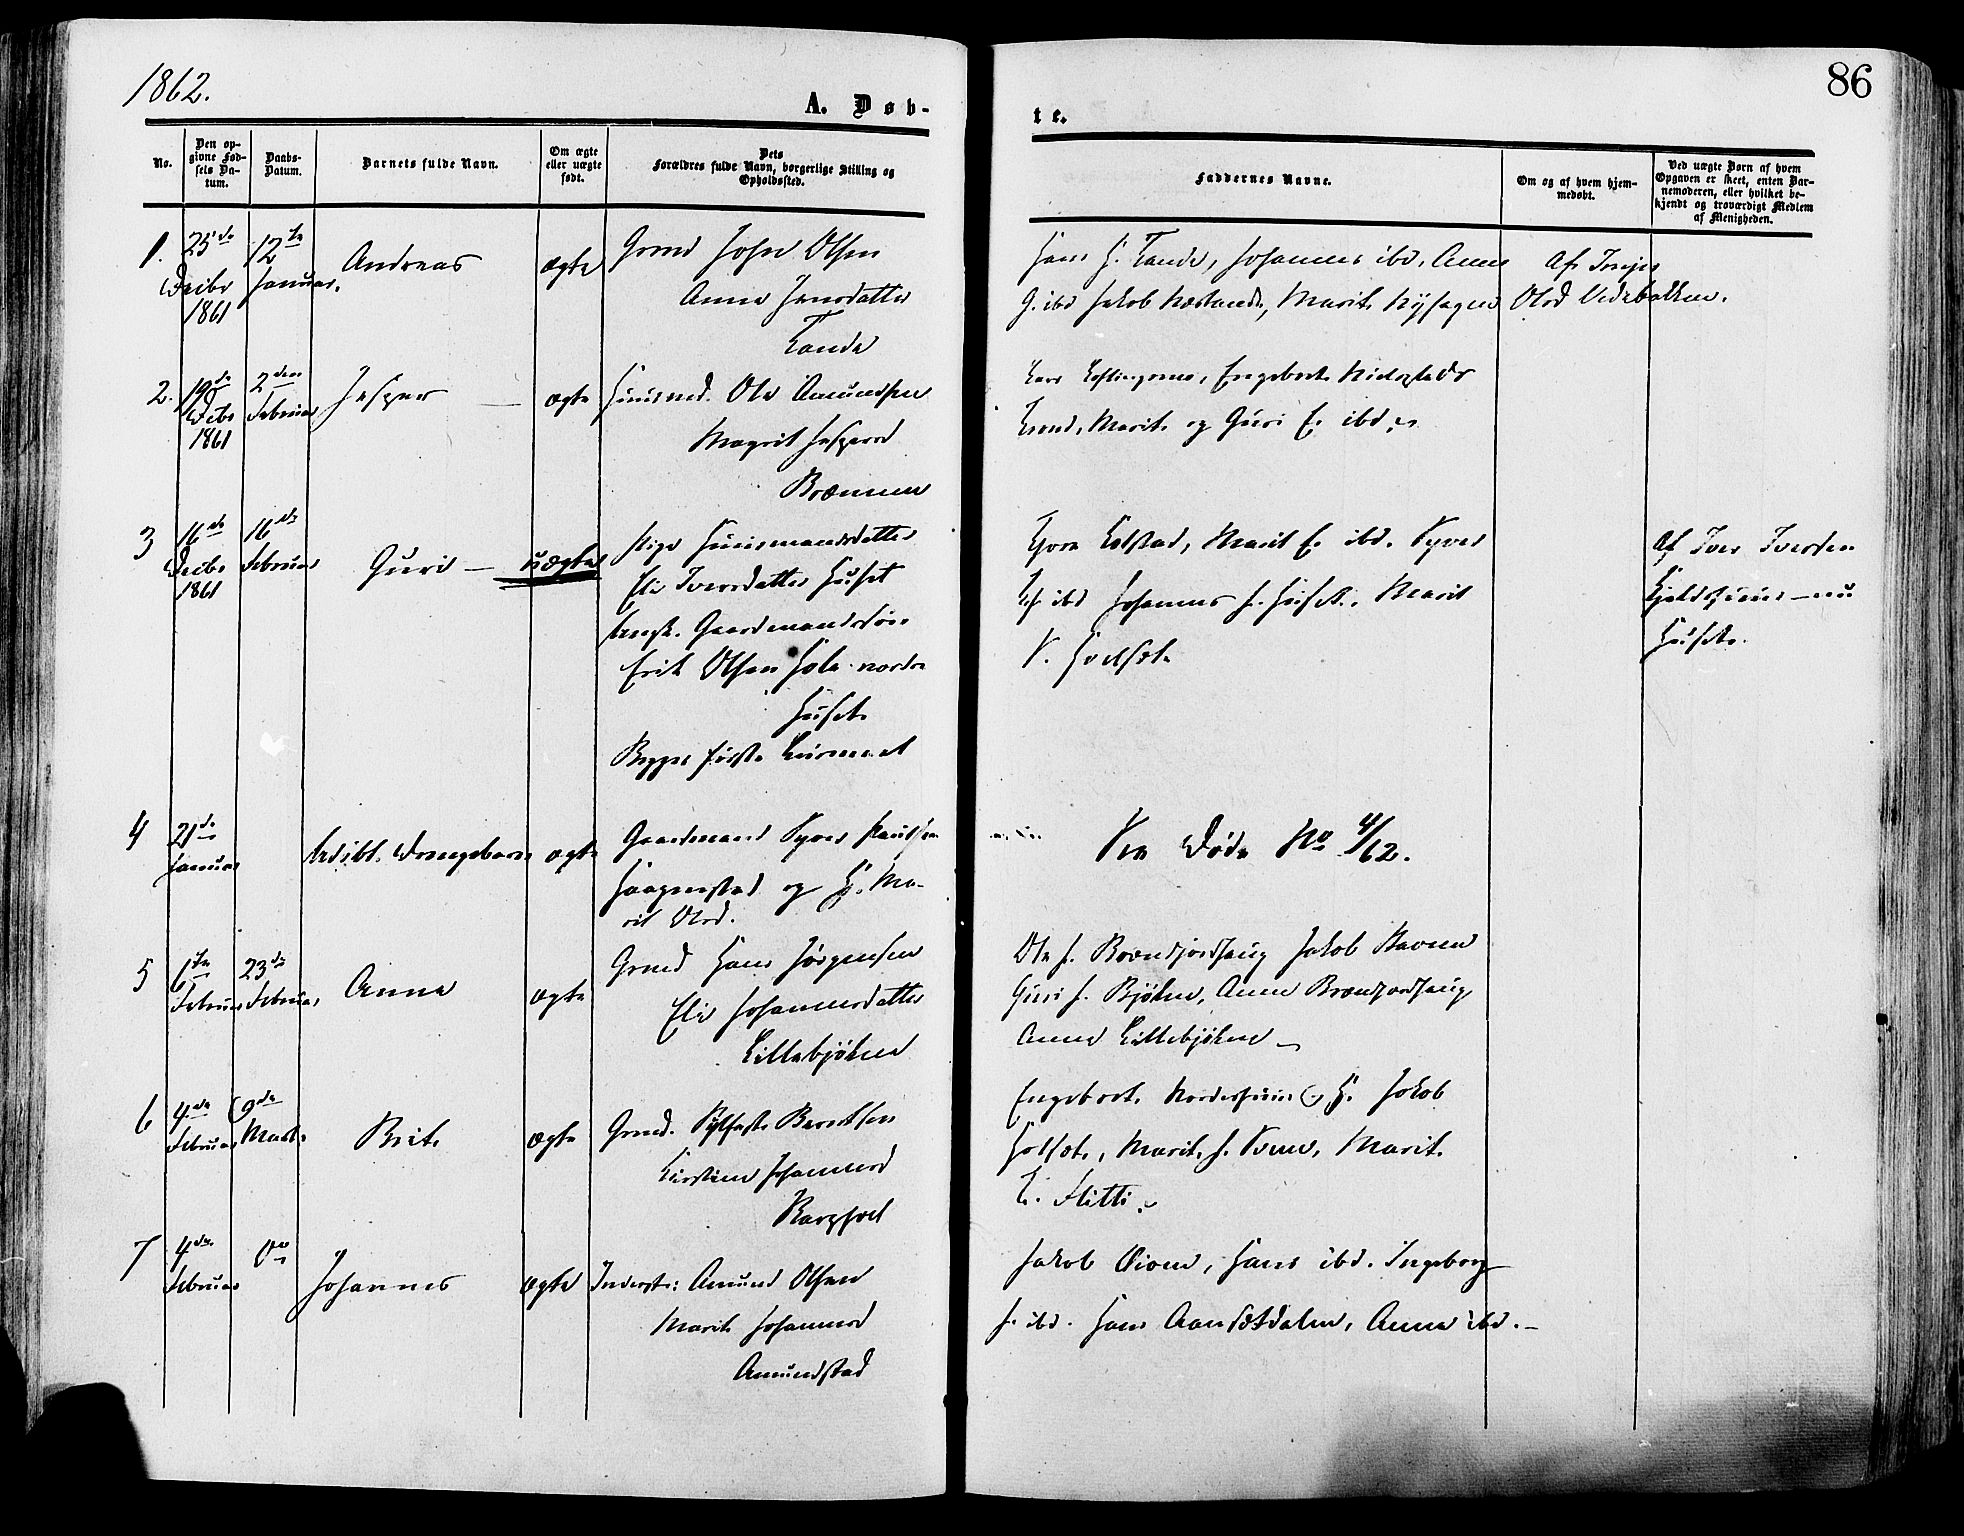 1862.
86
A. Døb-
te.
No.
Den op-
givne Fød-
sels Da-
tum.
Daabs-
Datum.
Barnets fulde Navn.
Om ægte
eller uægte
født.
Dets
Forældres fulde Navn, borgerlige Stilling og
Opholdssted.
Faddernes Navne.
Om og af hvem hjem-
medøbt.
Ved uægte Børn af hvem
Opgaven er skeet, enten Bar-
nemoderen, eller hvilket be-
kjendt og troværdigt Medlem
af Menigheden.
1.
25de
Decbr
1861
12te
Januar.
Andreas
ægte
Grmd John Olsen
Anne Jensdatter
Lande
Hans H. Lande, Johannes ibd, Anne
G. ibd Jakob Marit
Af
Olsd Vedebakken.
2.
19de
Decbr
1861
2den
Februar
Jesper
ægte
Huusmd. Ole Amundsen
Magrit Jespersd
Brænnen
Engebret
Marit og Guri E. ibd
3
16de
Decbr
1861
16de
Februar
Guri
uægte
Pige Huusmandsdatter
Eli Iversdatter Huset
Ungk. Gaardmandssøn
Erik Olsen Hole nordre
Huset
Begges første Leiermaal
Kolstad, Marit E. ibd. Syver
ibd Johannes J. Huset, Marit
S.
Af Iver Iversen
nu
Huset.
4
21de
Januar
Udøbt Drengebarn
ægte
Gaardmand Syver Paulsen
Haagenstad og H. Ma-
rit Olsd.
Vid Døde No 4/62.
5
6te
Februar
23de
Februar
Anne
ægte
Grmd Hans Jørgensen
Eli Johannesdatter
Lillebjöken
Ole J. Brændjordhaug Jakob Stavem
Guri J. Bjöken, Anne Brændjordhaug
Anne Lillebjöken
6
4de
Februar
9de
Marts
Brit
ægte
Grmd. Sylfest Berntsen
Kirstine Johannesd
Bergheel
Engebret H. Jakob
Holset, Marit J. Marit
E. Flitti
7
4de
Februar
do
Johannes
ægte
Inderst: Amund Olsen
Marit Johannesd
Amundstad
Jakob Öiom, Hans ibd. Ingeborg
J. ibd. Hans Aansætdalen, Anne ibd.